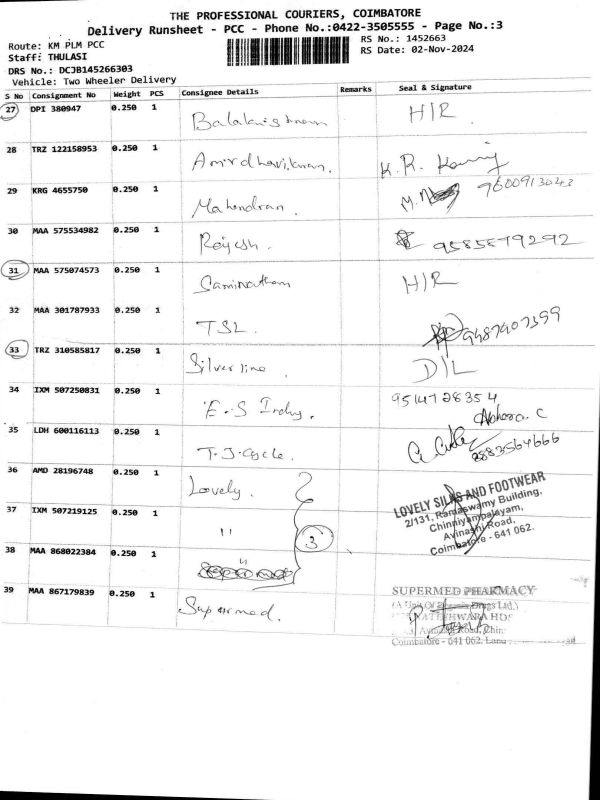 THE PROFESSIONAL COURIERS, COIMBATORE
Delivery Runsheet - PCC - Phone No.:0422-3505555 - Page No.:3
Route: KM PLM PCC
RS No.: 1452663
Staff: THULASI
RS Date: 02-Nov-2024
DRS No.: DCJB145266303
Vehicle: Two Wheeler Delivery
S No Consignment No Weight PCS Consignee Details Remarks Seal & Signature
27 DPI 380947 0.250 1 Balakrishnan H/R
28 TRZ 122158953 0.250 1 K.R.
29 KRG 4655750 0.250 1 Mahendran. 9600913043
30 MAA 575534982 0.250 1 Rajesh. 9585579292
31 MAA 575074573 0.250 1 Saminathan H/R
32 MAA 301787933 0.250 1 TSL. 9487907399
33 TRZ 310585817 0.250 1 Silverline. D/L
34 IXM 507250831 0.250 1 E.S Indus. 9514728354
35 LDH 600116113 0.250 1 T.J.cycle. 8883564666
36 AMD 28196748 0.250 1 Lovely.
37 IXM 507219125 0.250 1 " 3
38 MAA 868022384 0.250 1 "
LOVELY SILKS AND FOOTWEAR
2/131, Ramaswamy Building,
Chinniyampalayam,
Avinashi Road,
Coimbatore - 641 062.
39 MAA 867179839 0.250 1 Supermed.
SUPERMED PHARMACY
(A Unit Of Drugs Ltd.)
Avinashi Road, Chin
Coimbatore - 641 062.